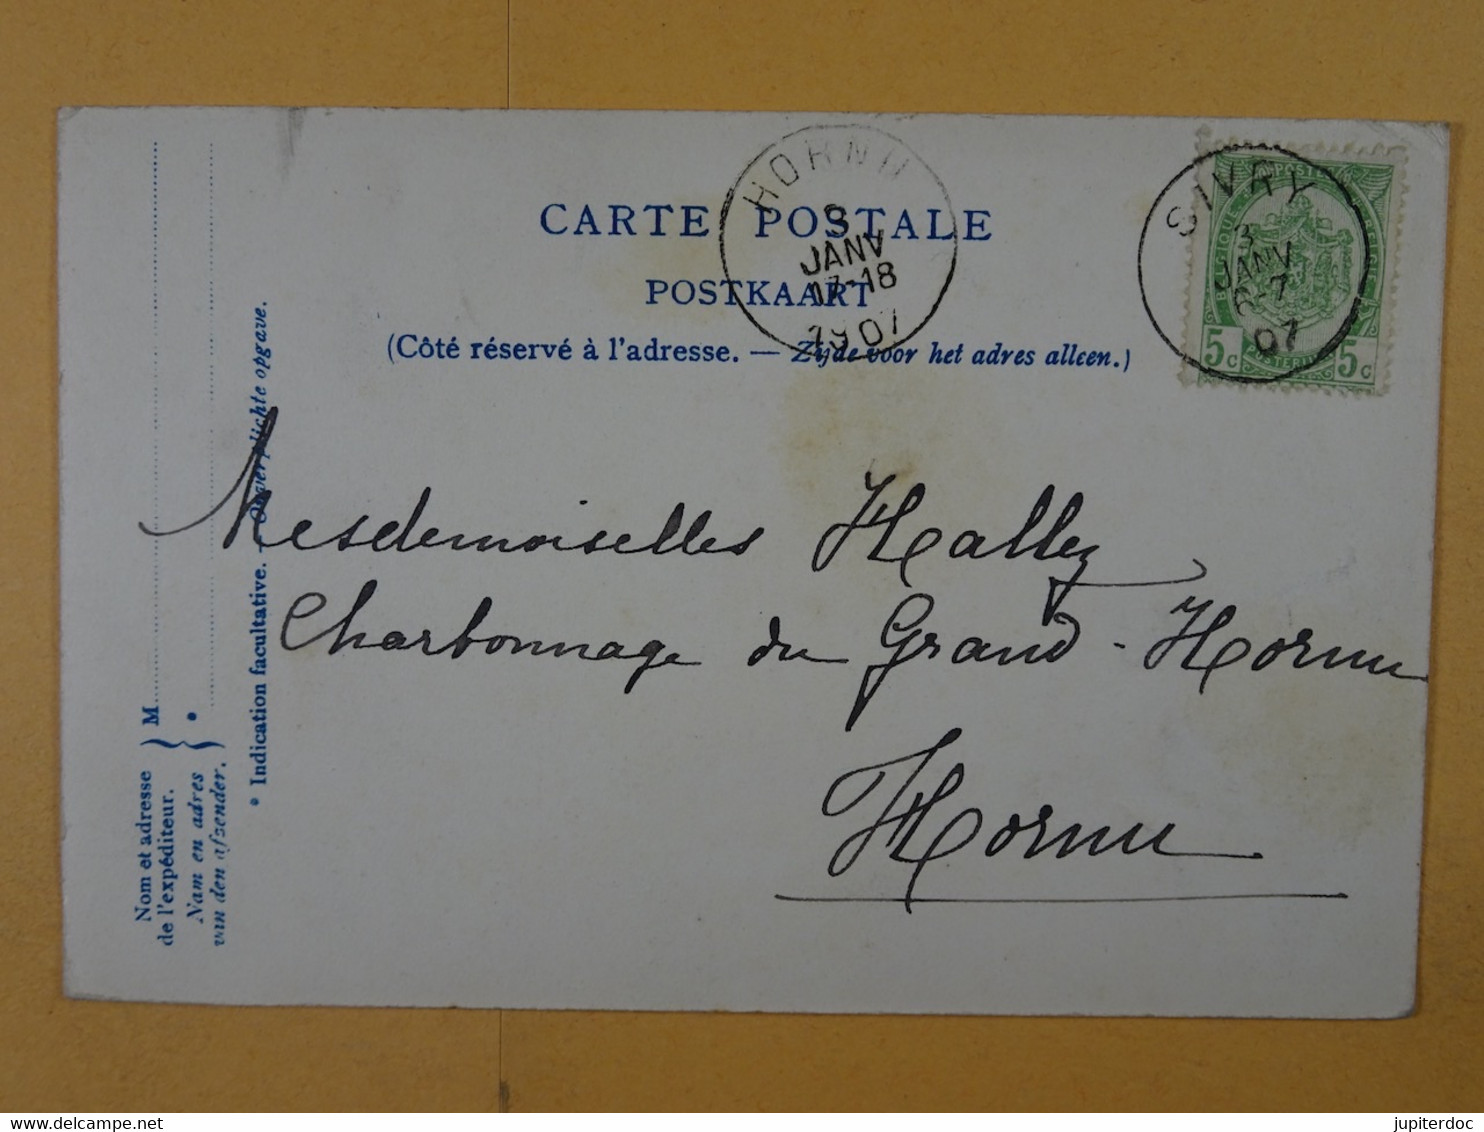 CARTE POSTALE
POSTKAART
(Côté réservé à l'adresse. — Zijde voor het adres alleen.)
HORNU
JANV
17-18
1907
SIVRY
3
JANV
6-7
07
5 c 5 c
Mesdemoiselles Hallez
Charbonnage du Grand-Hornu
Hornu
Nom et adresse
de l'expéditeur. } M
Nam en adres
van den afzender. } *
* Indication facultative. — Onverplichte opgave.
www.delcampe.net
jupiterdoc